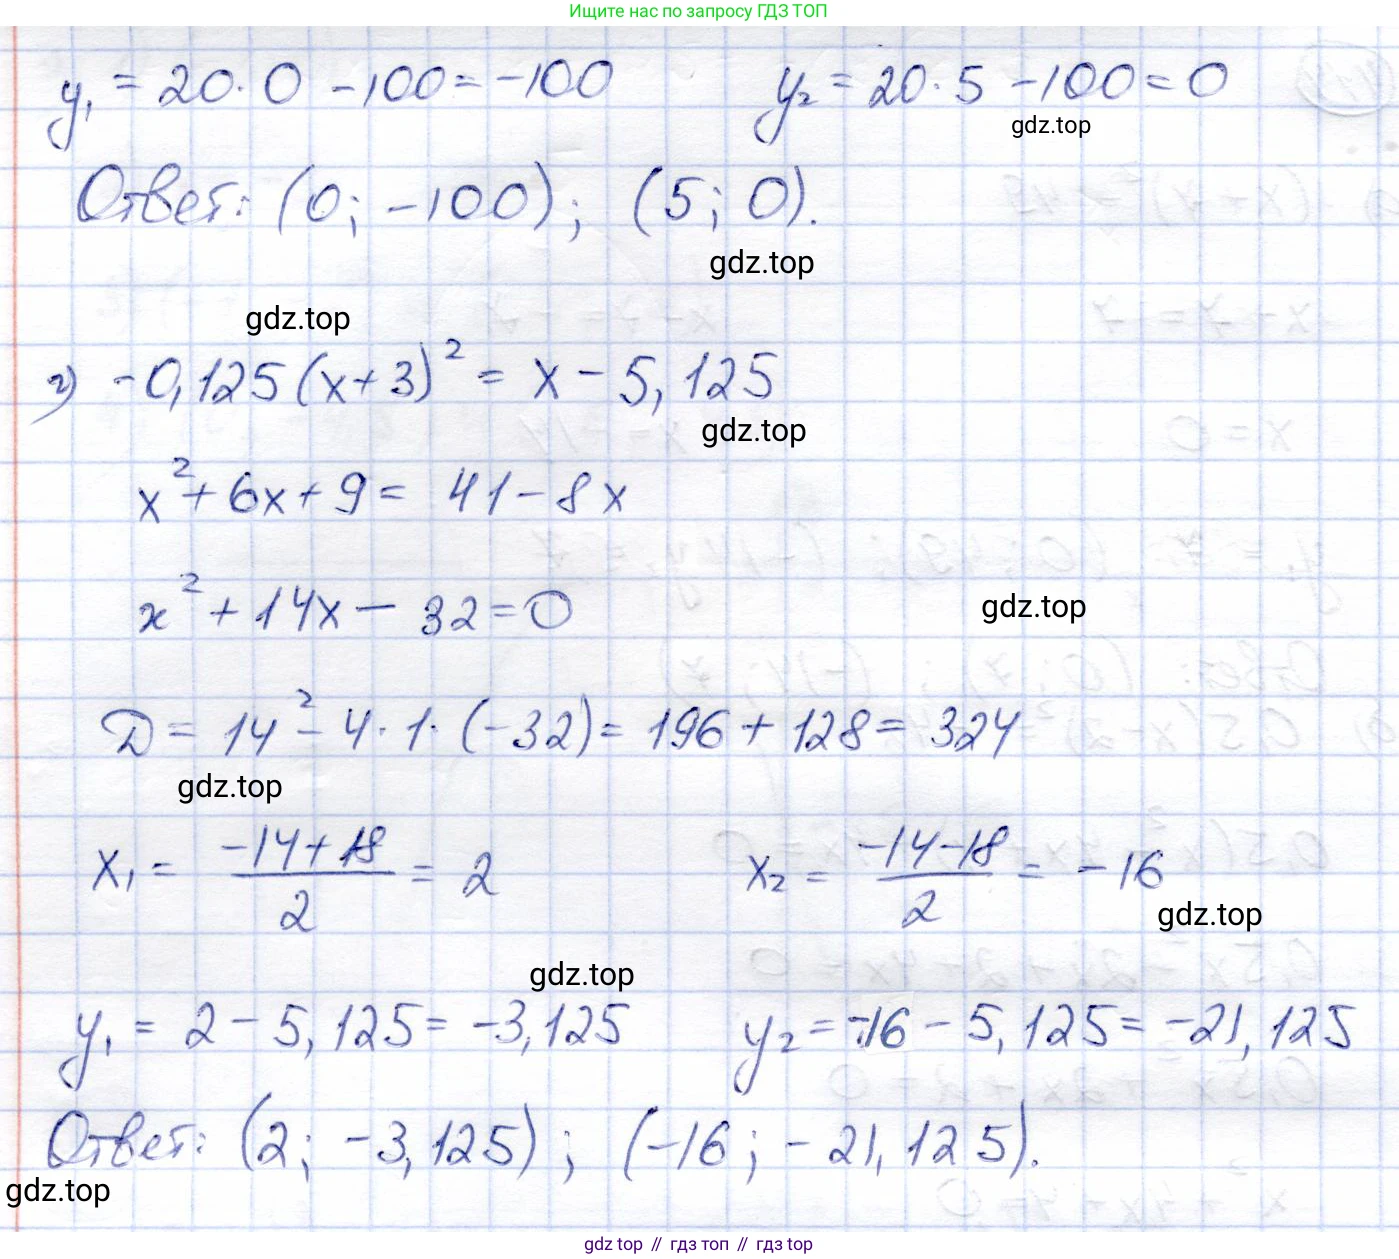 Ищите нас по запросу ГДЗ ТОП
y₁ = 20 · 0 − 100 = −100 y₂ = 20 · 5 − 100 = 0
gdz.top
Ответ: (0; −100); (5; 0).
gdz.top
gdz.top
г) −0,125(x+3)² = x − 5,125
gdz.top
x² + 6x + 9 = 41 − 8x
x² + 14x − 32 = 0
gdz.top
D = 14² − 4 · 1 · (−32) = 196 + 128 = 324
gdz.top
x₁ = (−14+18)/2 = 2 x₂ = (−14−18)/2 = −16
gdz.top
gdz.top
y₁ = 2 − 5,125 = −3,125 y₂ = −16 − 5,125 = −21,125
Ответ: (2; −3,125); (−16; −21,125).
gdz.top
gdz top // гдз топ // gdz top